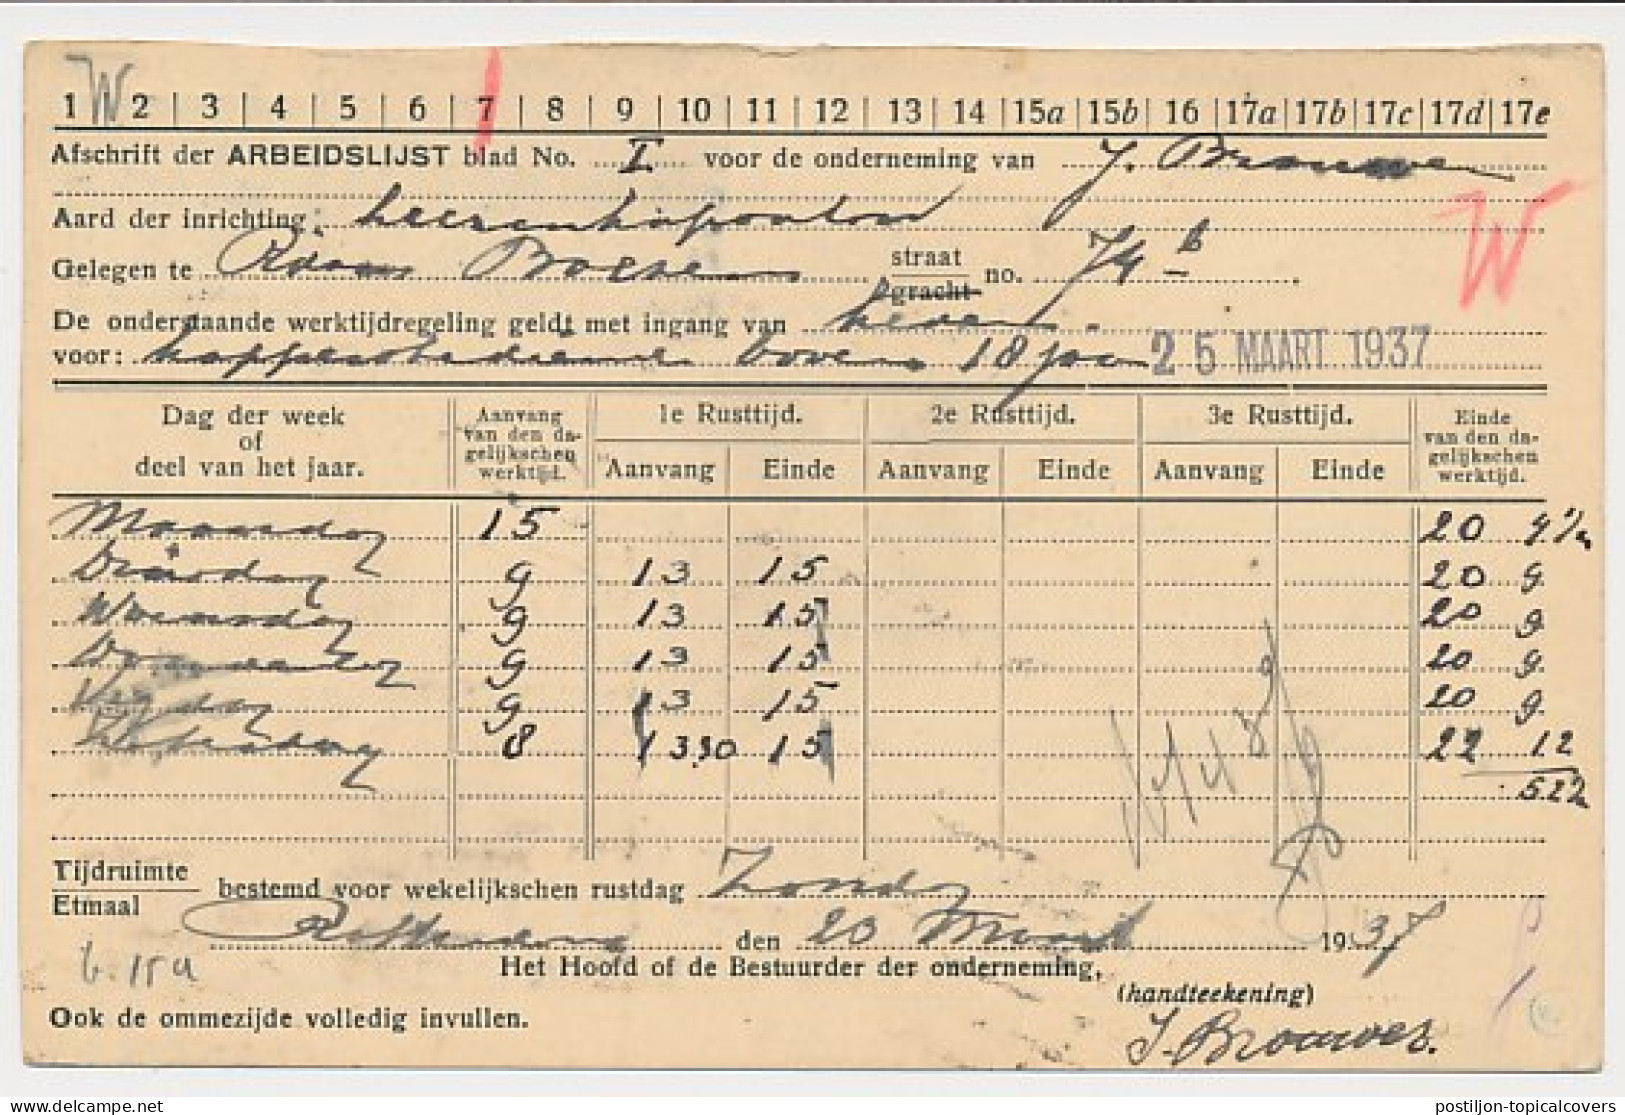 W
1 | 2 | 3 | 4 | 5 | 6 | 7 | 8 | 9 | 10 | 11 | 12 | 13 | 14 | 15a | 15b | 16 | 17a | 17b | 17c | 17d | 17e
Afschrift der ARBEIDSLIJST blad No. I voor de onderneming van J. Brouwer
Aard der inrichting: heerenkapsalon
W
Gelegen te straat gracht no. 74 b
De onderstaande werktijdregeling geldt met ingang van heden.
voor: kappersbediende boven 18 jaar 25 MAART 1937
Dag der week of deel van het jaar. Aanvang van den dagelijkschen werktijd. 1e Rusttijd. 2e Rusttijd. 3e Rusttijd. Einde van den dagelijkschen werktijd.
Aanvang Einde Aanvang Einde Aanvang Einde
Maandag 15 20 4 1/2
Dinsdag 9 13 15 20 9
Woensdag 9 13 15 20 9
Donderdag 9 13 15 20 9
Vrijdag 9 13 15 20 9
Zaterdag 8 13.30 15 22 12
52 1/2
Tijdruimte
Etmaal bestemd voor wekelijkschen rustdag Zondag
Rotterdam den 20 Maart 1937
b. 15a
Het Hoofd of de Bestuurder der onderneming,
(handteekening)
Ook de ommezijde volledig invullen.
J. Brouwer.
the best of collectibles | Delcampe
postiljon-topicalcovers